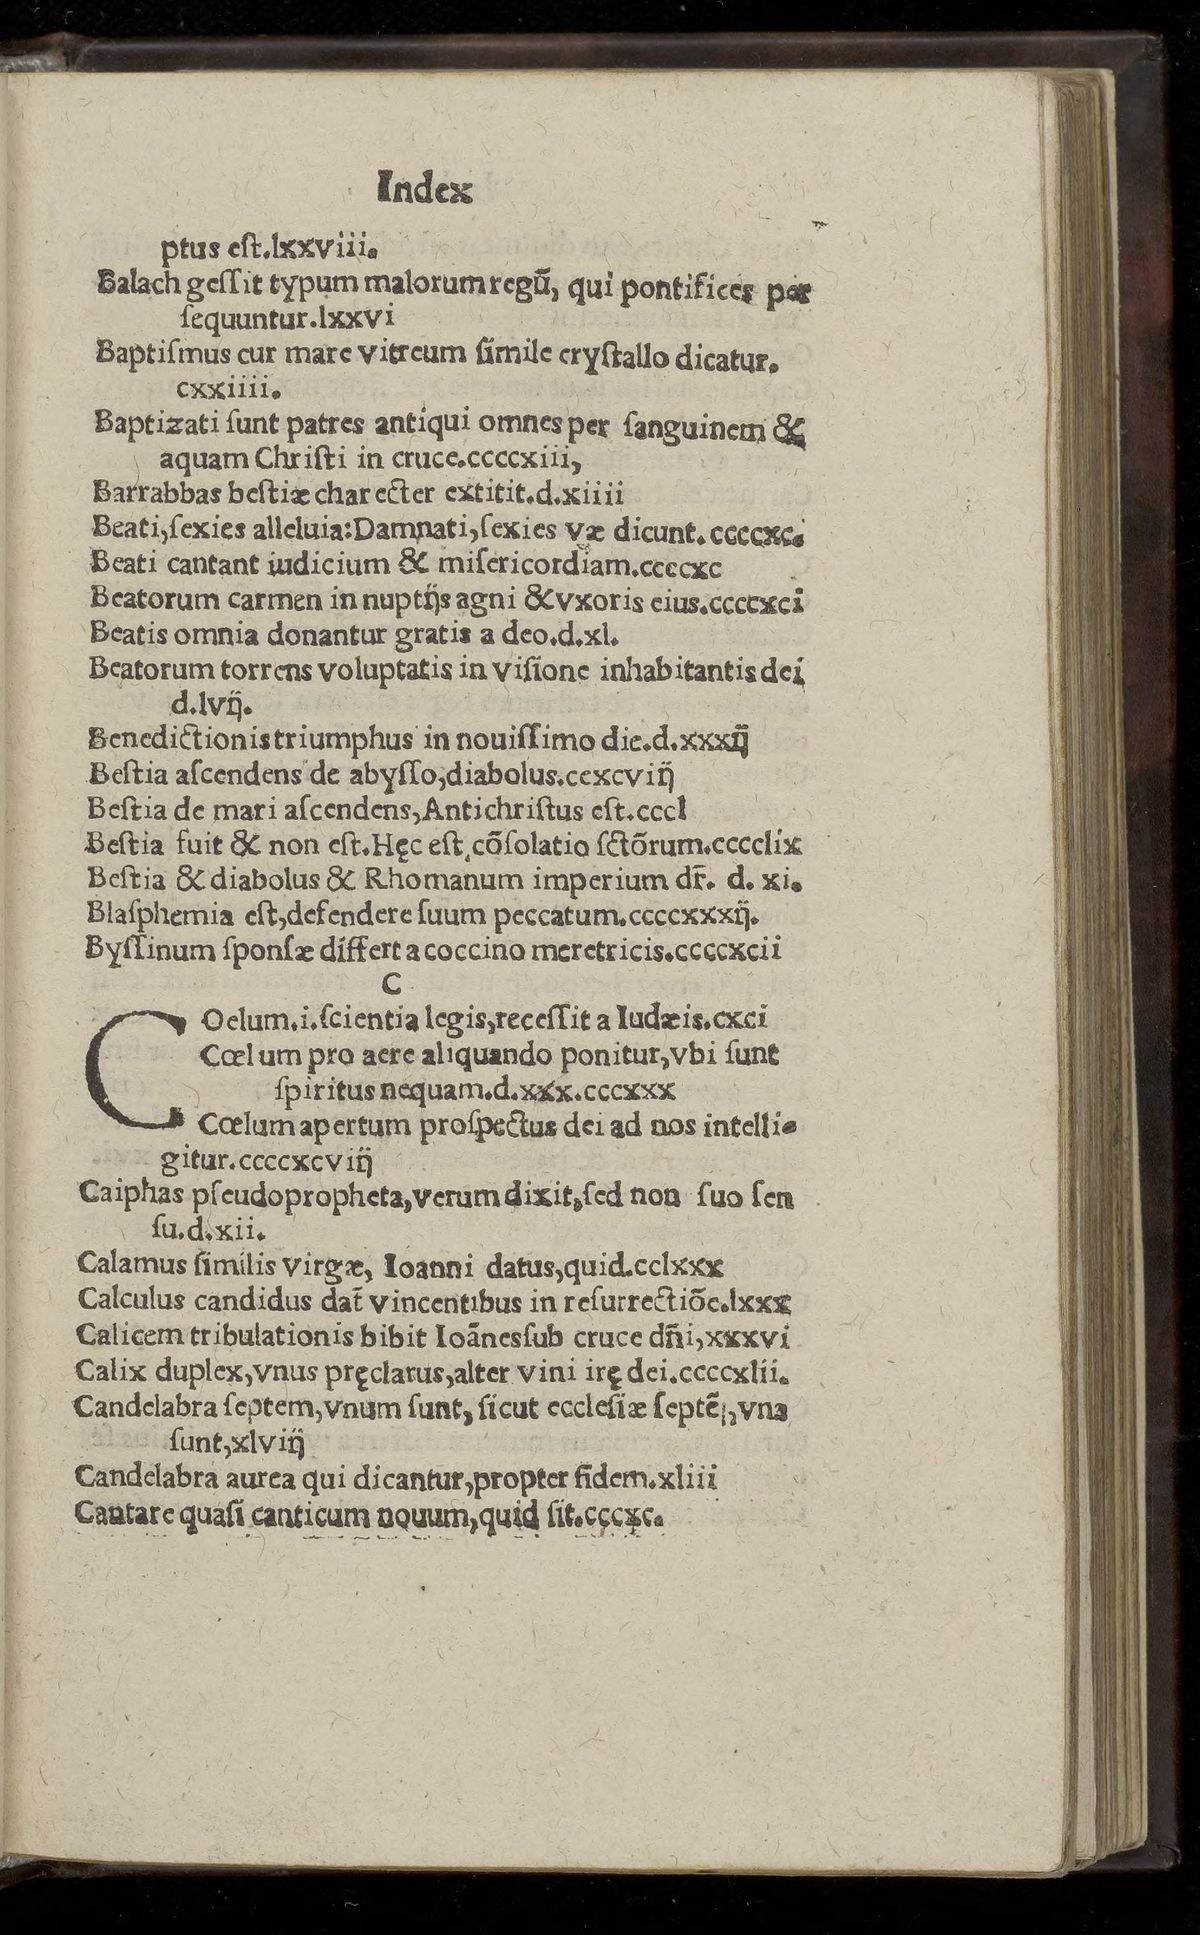 Index
ptus eſt.lxxviii.
Balach geſſit typum malorum regū, qui pontifices per
ſequuntur.lxxvi
Baptiſmus cur mare vitreum ſimile cryſtallo dicatur.
cxxiiii.
Baptizati ſunt patres antiqui omnes per ſanguinem &
aquam Chriſti in cruce.ccccxiii,
Barrabbas beſtiæ charecter extitit.d.xiiii
Beati,ſexies alleluia:Damnati,ſexies væ dicunt.ccccxc.
Beati cantant iudicium & miſericordiam.ccccxc
Beatorum carmen in nuptijs agni & vxoris eius.ccccxci
Beatis omnia donantur gratis a deo.d.xl.
Beatorum torrens voluptatis in viſione inhabitantis dei
d.lvij.
Benedictionis triumphus in nouiſſimo die.d.xxxij
Beſtia aſcendens de abyſſo,diabolus.cexcviij
Beſtia de mari aſcendens,Antichriſtus eſt.cccl
Beſtia fuit & non eſt.Hęc eſt cōſolatio ſctōrum.cccclix
Beſtia & diabolus & Rhomanum imperium dr̄. d. xi.
Blaſphemia eſt,defendere ſuum peccatum.ccccxxxij.
Byſſinum ſponſæ differt a coccino meretricis.ccccxcii
C
COelum.i.ſcientia legis,receſſit a Iudæis.cxci
Cœlum pro aere aliquando ponitur,vbi ſunt
ſpiritus nequam.d.xxx.cccxxx
Cœlum apertum proſpectus dei ad nos intelli-
gitur.ccccxcviij
Caiphas pſeudopropheta,verum dixit,ſed non ſuo ſen
ſu.d.xii.
Calamus ſimilis virgæ, Ioanni datus,quid.cclxxx
Calculus candidus dat̄ vincentibus in reſurrectiōe.lxxx
Calicem tribulationis bibit Ioānes ſub cruce dn̄i,xxxvi
Calix duplex,vnus pręclarus,alter vini irę dei.ccccxlii.
Candelabra ſeptem,vnum ſunt, ſicut eccleſiæ ſeptē,vna
ſunt,xlviij
Candelabra aurea qui dicantur,propter fidem.xliii
Cantare quaſi canticum nouum,quid ſit.cccxc.